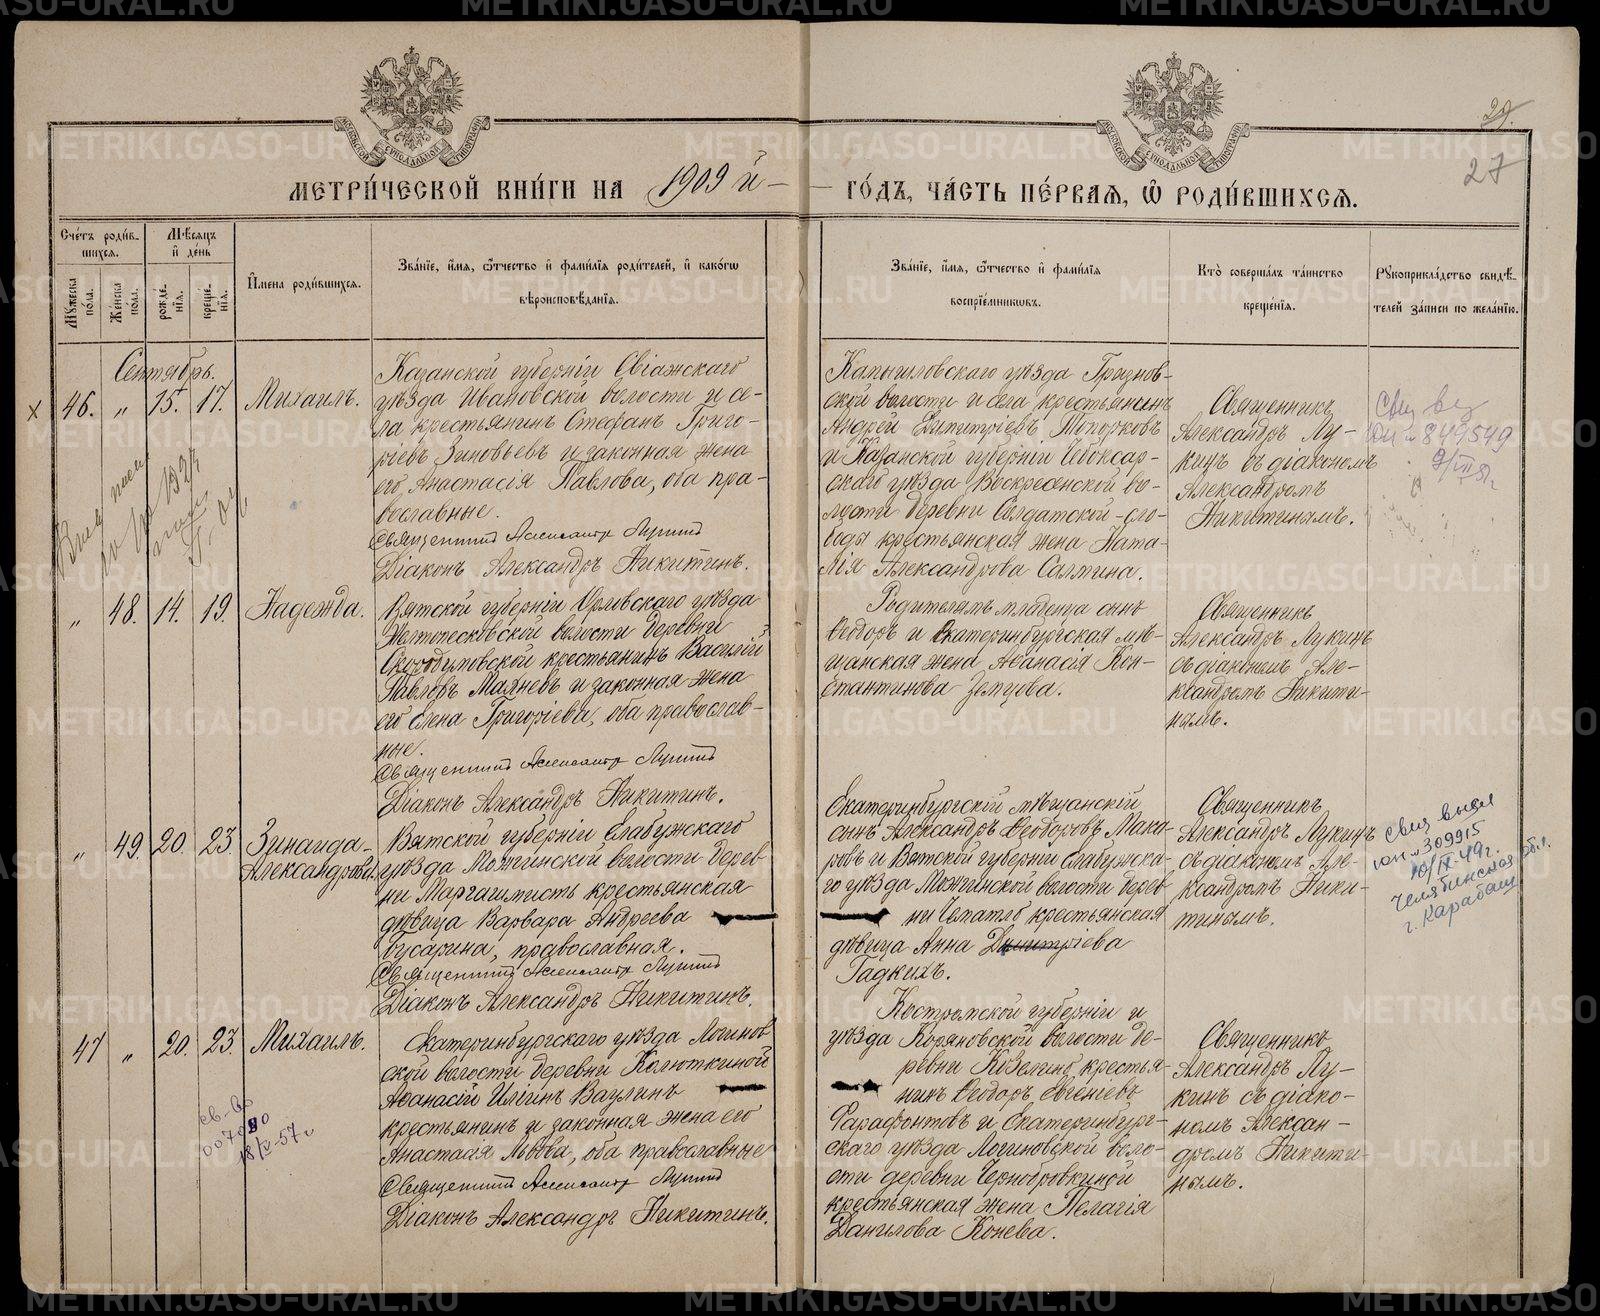 МЕТРИ́ЧЕСКОЙ КНИ́ГИ НА 1909 й ГО́ДЪ, ЧА́СТЬ ПЕ́РВАЯ, Ѡ РОДИ́ВШИХСЯ.
29.
27
Сче́тъ роди́в-
шихся.
Мѣ́сяцъ
и де́нь
Му́жеска
по́ла.
Же́нска
по́ла.
рожде́-
нія.
креще́-
нія.
И́мена роди́вшихся.
Зва́ніе, и́мя, ѻ́тчество и фами́лія роди́телей, и како́гѡ
вѣроисповѣ́данія.
Зва́ніе, и́мя, ѻ́тчество и фами́лія
воспріе́мниковъ.
Кто̀ соверша́лъ та́инство
креще́нія.
Рукоприкла́дство свидѣ́-
телей за́писи по жела́нію.
Сентябрь.
х 46. „ 15. 17. Михаилъ.
Казанской губерніи Свіажского
уѣзда Ивановской волости и се-
ла крестьянинъ Стефанъ Григо-
рьевъ Зиновьевъ и законная жена
его Анастасія Павлова, оба пра-
вославные.
Священникъ Александръ Лукинъ
Діаконъ Александръ Никитинъ.
уѣзда
ской волости и села крестьянинъ
Андрей Димитріевъ Топорковъ
и Казанской губерніи Чебоксар-
скаго уѣзда Воскресенской во-
лости деревни Солдатской-сло-
боды крестьянская жена Ната-
лія Александрова Салмина.
Священникъ
Александръ Лу-
кинъ съ діакономъ
Александромъ
Никитинымъ.
849549
„ 48. 14. 19. Надежда.
Вятской губерніи Орловскаго уѣзда
волости деревни
крестьянинъ Василій
Павловъ и законная жена
его Елена Григоріева, оба православ-
ные.
Священникъ Александръ Лукинъ
Діаконъ Александръ Никитинъ.
Родителямъ младенца сынъ
Ѳеодоръ и Екатеринбургская мѣ-
щанская жена Аѳанасія Кон-
стантинова Земцова.
Священникъ
Александръ Лукинъ
съ діакономъ Але-
ксандромъ Никити-
нымъ.
„ 49. 20. 23. Зинаида-
Александрова.
Вятской губерніи Елабужскаго
уѣзда Можгинской волости дерев-
ни крестьянская
дѣвица Варвара Андреева
Бусарина, православная.
Священникъ Александръ Лукинъ
Діаконъ Александръ Никитинъ.
Екатеринбургскій мѣщанскій
сынъ Александръ Ѳеодоровъ Мака-
ровъ и Вятской губерніи Елабужска-
го уѣзда Можгинской волости дерев-
ни крестьянская
дѣвица Анна Димитріева
Гадкихъ.
Священникъ
Александръ Лукинъ
съ діакономъ Але-
ксандромъ Ники-
тинымъ.
свид выдел
юн № 309915
10/IX-49 г.
Челябинская обл.
г. Карабаш
47 „ 20. 23. Михаилъ.
Екатеринбургскаго уѣзда Логинов
ской волости деревни Колюткиной
Аѳанасій Илінъ Ваулинъ
крестьянинъ и законная жена его
Анастасія Львова, оба православные
Священникъ Александръ Лукинъ
Діаконъ Александръ Никитинъ.
св-во
007080
Костромской губерніи и
уѣзда Коряковской волости де-
ревни Козелино крестья-
нинъ Ѳеодоръ Евгеніевъ
Фарафонтовъ и Екатеринбург-
скаго уѣзда Логиновской воло-
сти деревни Чернобровкиной
крестьянская жена Пелагія
Данилова Конева.
Священникъ
Александръ Лу-
кинъ съ діако-
номъ Алексан-
дромъ Никити-
нымъ.
METRIKI.GASO-URAL.RU